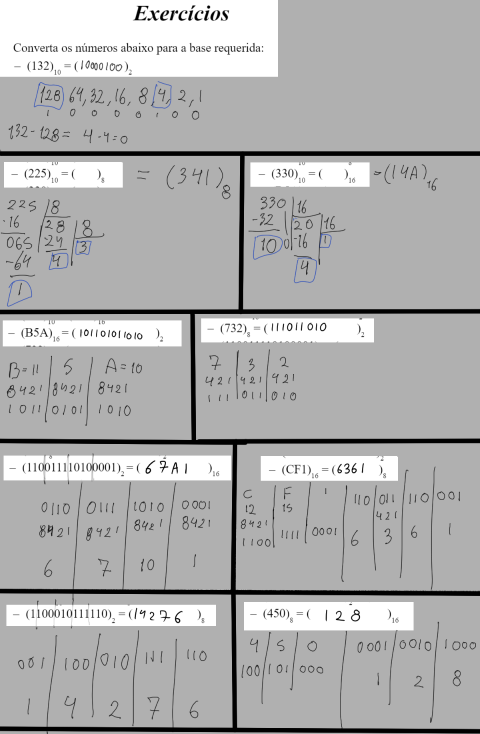 Exercícios
Converta os números abaixo para a base requerida:
– (132)₁₀ = (10000100)₂
128, 64, 32, 16, 8, 4, 2, 1
1 0 0 0 0 1 0 0
132-128= 4-4=0
– (225)₁₀ = ( )₈ = (341)₈
225 | 8
-16 28 | 8
065 -24 3
-64 4
1
– (330)₁₀ = ( )₁₆ =(14A)₁₆
330 | 16
-32 20 | 16
10 0 -16 1
4
– (B5A)₁₆ = (101101011010)₂
B=11 | 5 | A=10
8421 | 8421 | 8421
1011 | 0101 | 1010
– (732)₈ = (111011010)₂
7 | 3 | 2
421 | 421 | 421
111 | 011 | 010
– (110011110100001)₂ = (67A1)₁₆
0110 | 0111 | 1010 | 0001
8421 | 8421 | 8421 | 8421
6 | 7 | 10 | 1
– (CF1)₁₆ = (6361)₈
C | F | 1 | 110 | 011 | 110 | 001
12 | 15 | 421
8421
1100 | 1111 | 0001 | 6 | 3 | 6 | 1
– (1100010111110)₂ = (14276)₈
001 | 100 | 010 | 111 | 110
1 | 4 | 2 | 7 | 6
– (450)₈ = (128)₁₆
4 | 5 | 0 | 0001 | 0010 | 1000
100 | 101 | 000
1 | 2 | 8